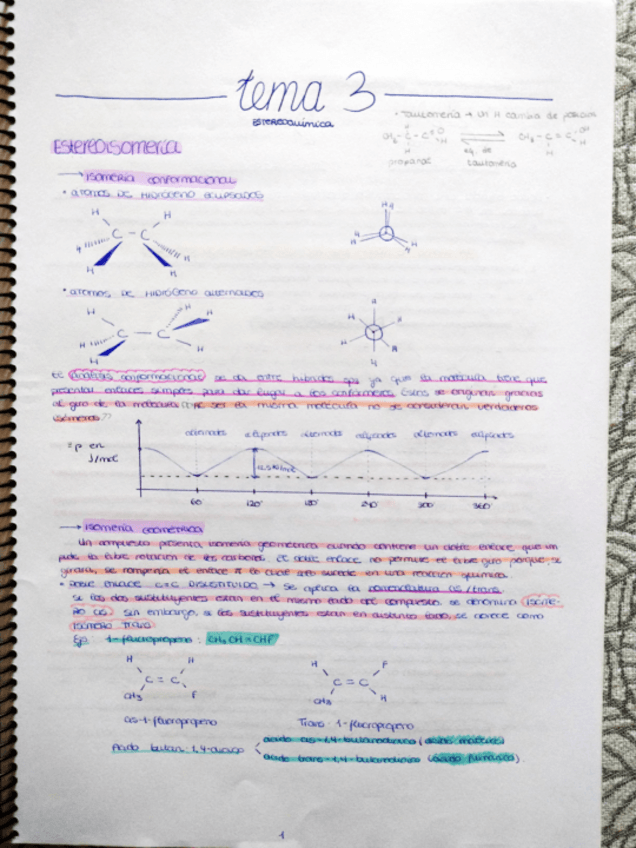 tema 3
ESTEREOQUÍMICA
• Tautomería → un H cambia de posición
CH₃ - C - C
H
H
CH₃ - C = C
OH
H
H
propanal
eq. de tautomería
Estereoisomería
→ isomería conformacional
• ÁTOMOS DE HIDRÓGENO ECLIPSADOS
H H
C - C
H H
H H
HH
H H
H H
• ÁTOMOS DE HIDRÓGENO ALTERNADOS
H H H
C - C
H H
H
H
H H
H H
H
El análisis conformacional se da entre híbridos sp₃ ya que la molécula tiene que
presentar enlaces simples para dar lugar a los confórmeros. Estos se originan gracias
al giro de la molécula. Al ser la misma molécula no se consideran verdaderos
isómeros.
Ep en J/mol
alternados eclipsados alternados eclipsados alternados eclipsados
60° 120° 180° 240° 300° 360°
→ isomería geométrica
Un compuesto presenta isomería geométrica cuando contiene un doble enlace que im-
pide la libre rotación de los carbonos. El doble enlace no permite el libre giro porque, si
girara, se rompería el enlace π lo cual solo sucede en una reacción química.
• DOBLE ENLACE C=C DISUSTITUIDO → Se aplica la nomenclatura cis/trans.
Si los dos sustituyentes están en el mismo lado del compuesto se denomina isóme-
ro cis. Sin embargo, si los sustituyentes están en distinto lado, se conoce como
isómero trans.
Ej: 1-fluoropropeno: CH₃CH=CHF
H H
C = C
CH₃ F
H F
C = C
CH₃ H
cis-1-fluoropropeno Trans-1-fluoropropeno
Ácido butan-1,4-dioico
ácido cis-1,4-butanodioico (ácido maleico)
ácido trans-1,4-butanodioico (ácido fumárico).
1